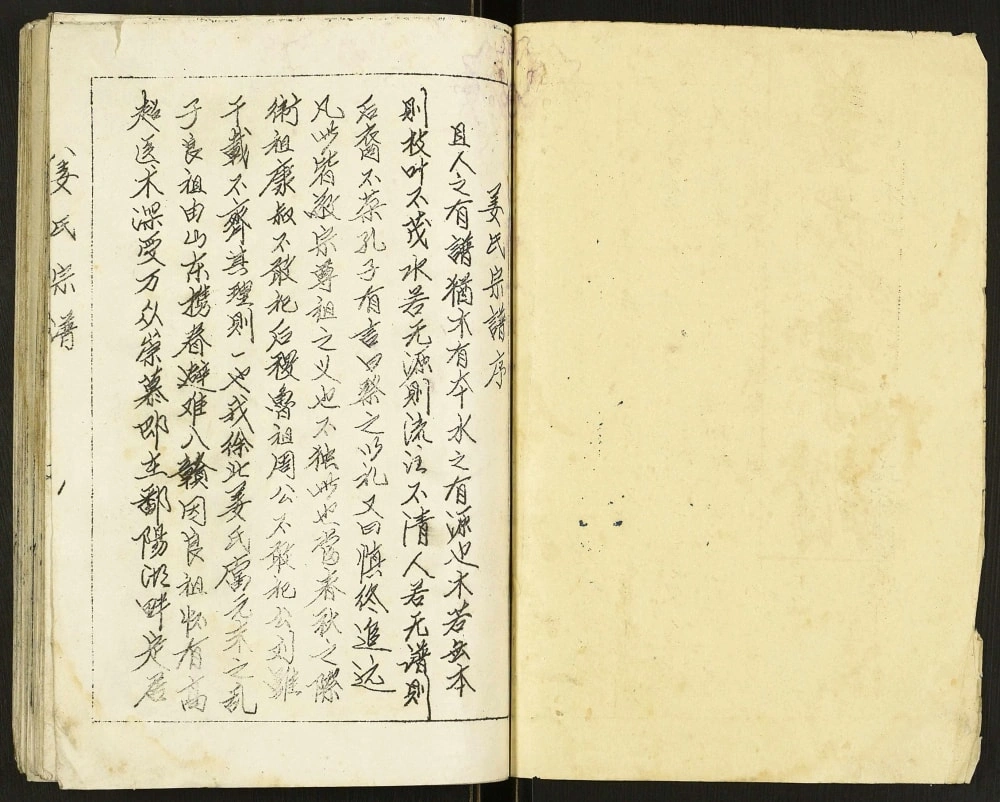 姜氏宗譜序
且人之有譜猶木有本水之有源也木若無本
則枝叶不茂水若无源则流注不清人若无谱则
后裔不菜孔子有言曰祭之以礼又曰慎终追远
凡此皆敬宗尊祖之义也不独此也當春秋之際
衛祖康叔不敢祀后稷魯祖周公不敢祀公刘雖
千載不齊其理則一也我徐北姜氏當元末之乱
子良祖由山东携眷避难入赣因良祖怀有高
超医术深受万众崇慕即在鄱陽湖畔定居
姜氏宗谱